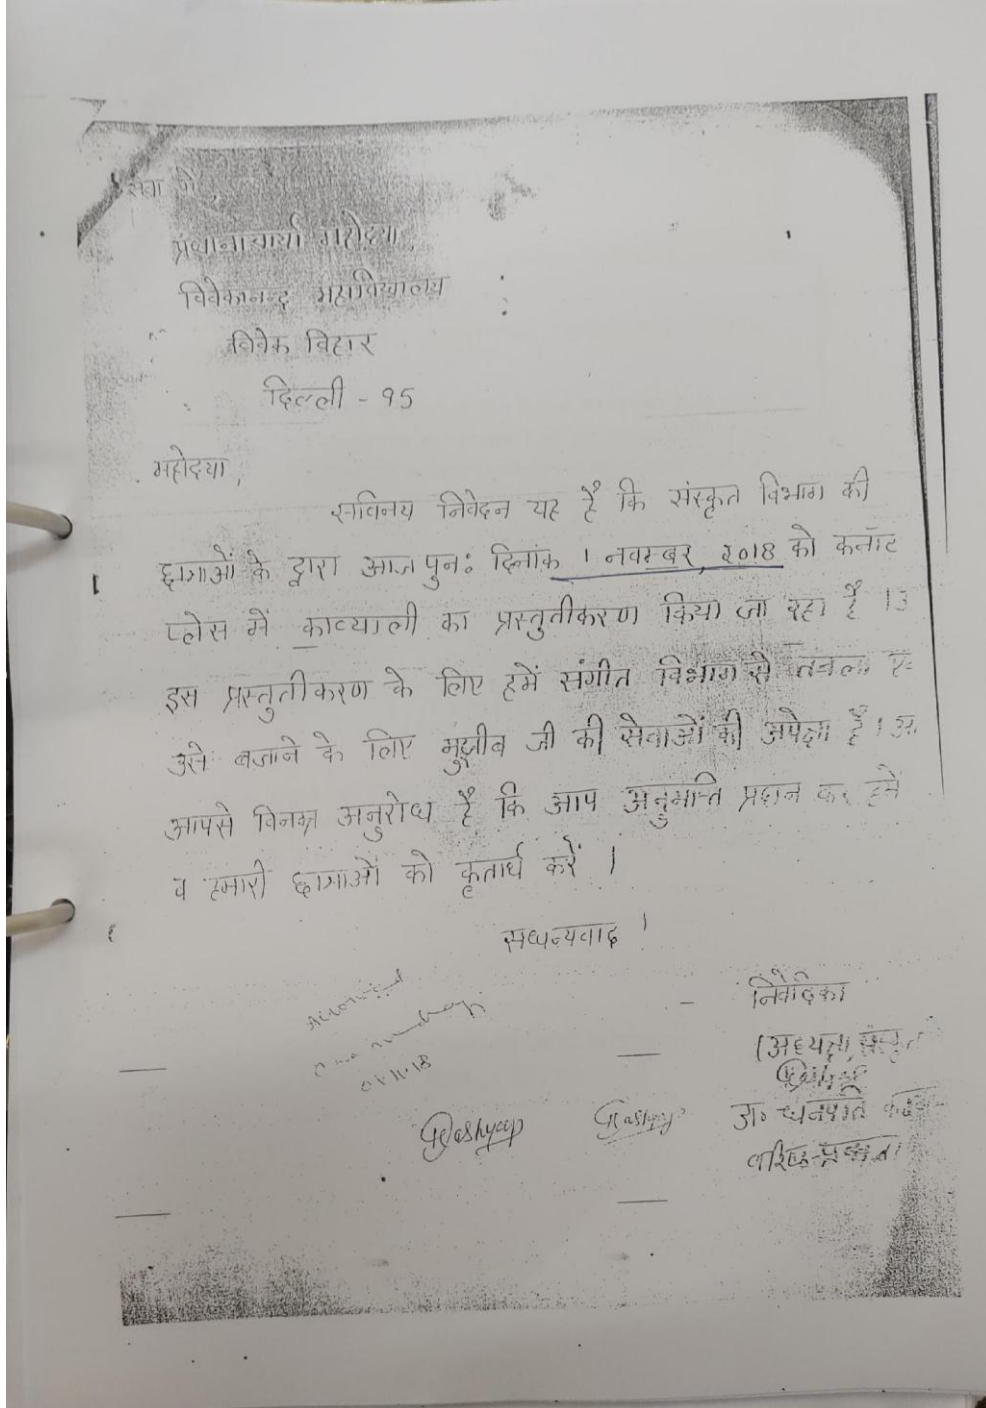 सेवा में
प्रधानाचार्या महोदया,
विवेकानन्द महाविद्यालय
विवेक विहार
दिल्ली - 95
महोदया,
सविनय निवेदन यह है कि संस्कृत विभाग की
छात्राओं के द्वारा आज पुनः दिनांक 1 नवम्बर, २०18 को कनॉट
प्लेस में काव्याली का प्रस्तुतीकरण किया जा रहा है ।
इस प्रस्तुतीकरण के लिए हमें संगीत विभाग से तबला
उसे बजाने के लिए मुजीब जी की सेवाओं की अपेक्षा है ।
आपसे विनम्र अनुरोध है कि आप अनुमति प्रदान कर हमें
व हमारी छात्राओं को कृतार्थ करें ।
सधन्यवाद !
- निवेदिका
(अध्यक्षा, संस्कृत
01.11.18
GKashyap
डॉ० धनपति
वरिष्ठ-प्रवक्ता